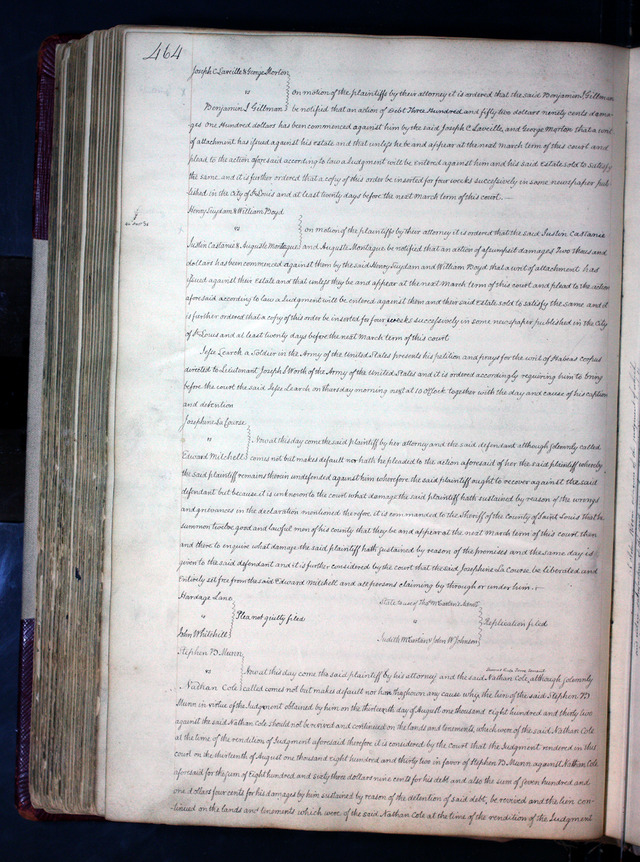 464
Joseph C. Laveille & George Morton
vs on motion of the plaintiffs by their attorney it is ordered that the said Benjamin L Gillman
Benjamin L Gillman be notified that an action of Debt Three Hundred and fifty two dollars ninety cents dama-
ges One Hundred dollars has been commenced against him by the said Joseph C. Laveille, and George Morton that a writ
of attachment has issued against his estate and that unless he be and appear at the next March term of this court and
plead to the action aforesaid according to law a Judgment will be entered against him and his said Estate sold to satisfy
the same and it is further ordered that a copy of this order be inserted for four weeks successively in some newspaper pub-
lished in the City of St Louis and at least twenty days before the next March term of this court. —
Henry Suydam & William Boyd
vs on motion of the plaintiffs by their attorney it is ordered that the said Justin Castanie
Justin Castanie & Auguste Montague and Auguste Montague be notified that an action of assumpsit damages Two thousand
dollars has been commenced against them by the said Henry Suydam and William Boyd that a writ of attachment has
issued against their Estate and that unless they be and appear at the next March term of this court and plead to the action
aforesaid according to law a Judgment will be entered against them and their said Estate sold to satisfy the same and it
is further ordered that a copy of this order be inserted for four weeks successively in some newspaper published in the City
of St Louis and at least twenty days before the next March term of this court.
Jesse Learch a Soldier in the Army of the United States presents his petition and prays for the writ of Habeas Corpus
directed to Lieutenant Joseph S Worth of the Army of the United States and it is ordered accordingly requiring him to bring
before the court the said Jesse Learch on Thursday morning next at 10 O'Clock together with the day and cause of his caption
and detention
Josephine La Course
vs Now at this day come the said plaintiff by her attorney and the said defendant although solemnly called
Edward Mitchell comes not but makes default nor hath he pleaded to the action aforesaid of her the said plaintiff whereby
the said plaintiff remains therein undefended against him wherefore the said plaintiff ought to recover against the said
defendant but because it is unknown to the court what damage the said plaintiff hath sustained by reason of the wrongs
and grievances in the declaration mentioned therefore it is commanded to the Sheriff of the County of Saint Louis that he
summon twelve good and lawful men of his county that they be and appear at the next March term of this court then
and there to enquire what damage the said plaintiff hath sustained by reason of the premises and the same day is
given to the said defendant and it is further considered by the court that the said Josephine La Course be liberated and
Entirely set free from the said Edward Mitchell and all persons claiming by through or under him.
Hardage Lane State to use of Thos McGuire's Admr
vs Plea not guilty filed vs Replication filed
John Whitehill Judith McGuire & John W Johnson
Stephen B. Munn
vs Now at this day come the said plaintiff by his attorney and the said Nathan Cole, although solemnly
Nathan Cole called comes not but makes default nor hath he shown any cause why the lien of the said Stephen B
Munn in virtue of the Judgment obtained by him on the thirteenth day of August one thousand eight hundred and thirty two
against the said Nathan Cole should not be revived and continued on the lands and tenements, which were of the said Nathan Cole
at the time of the rendition of Judgment aforesaid therefore it is considered by the Court that the Judgment rendered in this
court on the thirteenth of August one thousand eight hundred and thirty two in favor of Stephen B. Munn against Nathan Cole
aforesaid for the sum of Eight hundred and sixty three dollars nine cents for his debt and also the sum of seven hundred and
one dollars four cents for his damages by him sustained by reason of the detention of said debt, be revived and the lien con-
tinued on the lands and tenements which were of the said Nathan Cole at the time of the rendition of the Judgment